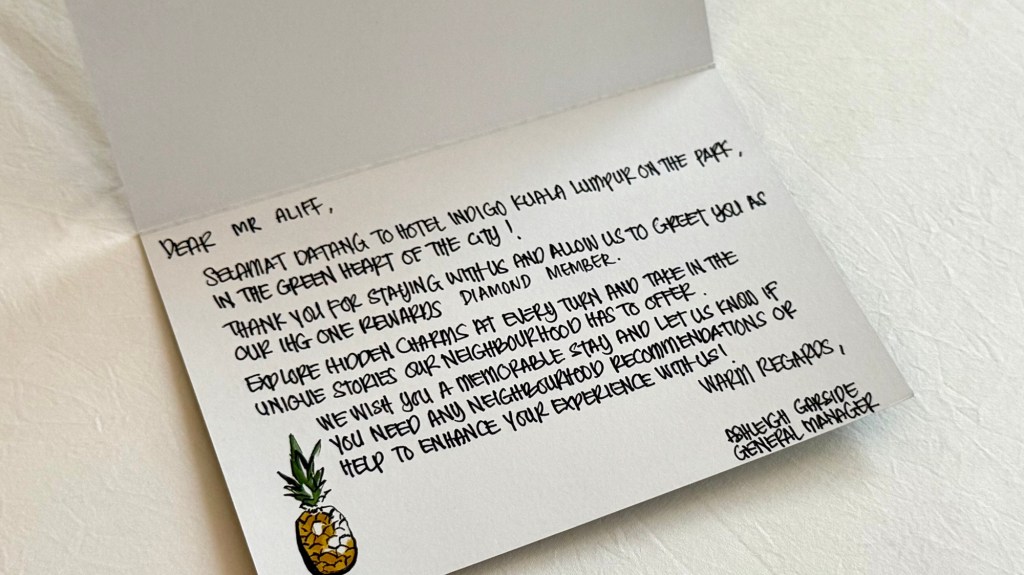 DEAR MR ALIFF,
SELAMAT DATANG TO HOTEL INDIGO KUALA LUMPUR ON THE PARK,
IN THE GREEN HEART OF THE CITY!
THANK YOU FOR STAYING WITH US AND ALLOW US TO GREET YOU AS
OUR IHG ONE REWARDS DIAMOND MEMBER.
EXPLORE HIDDEN CHARMS AT EVERY TURN AND TAKE IN THE
UNIQUE STORIES OUR NEIGHBOURHOOD HAS TO OFFER.
WE WISH YOU A MEMORABLE STAY AND LET US KNOW IF
YOU NEED ANY NEIGHBOURHOOD RECOMMENDATIONS OR
HELP TO ENHANCE YOUR EXPERIENCE WITH US!
WARM REGARDS,
ASHLEIGH GARSIDE
GENERAL MANAGER